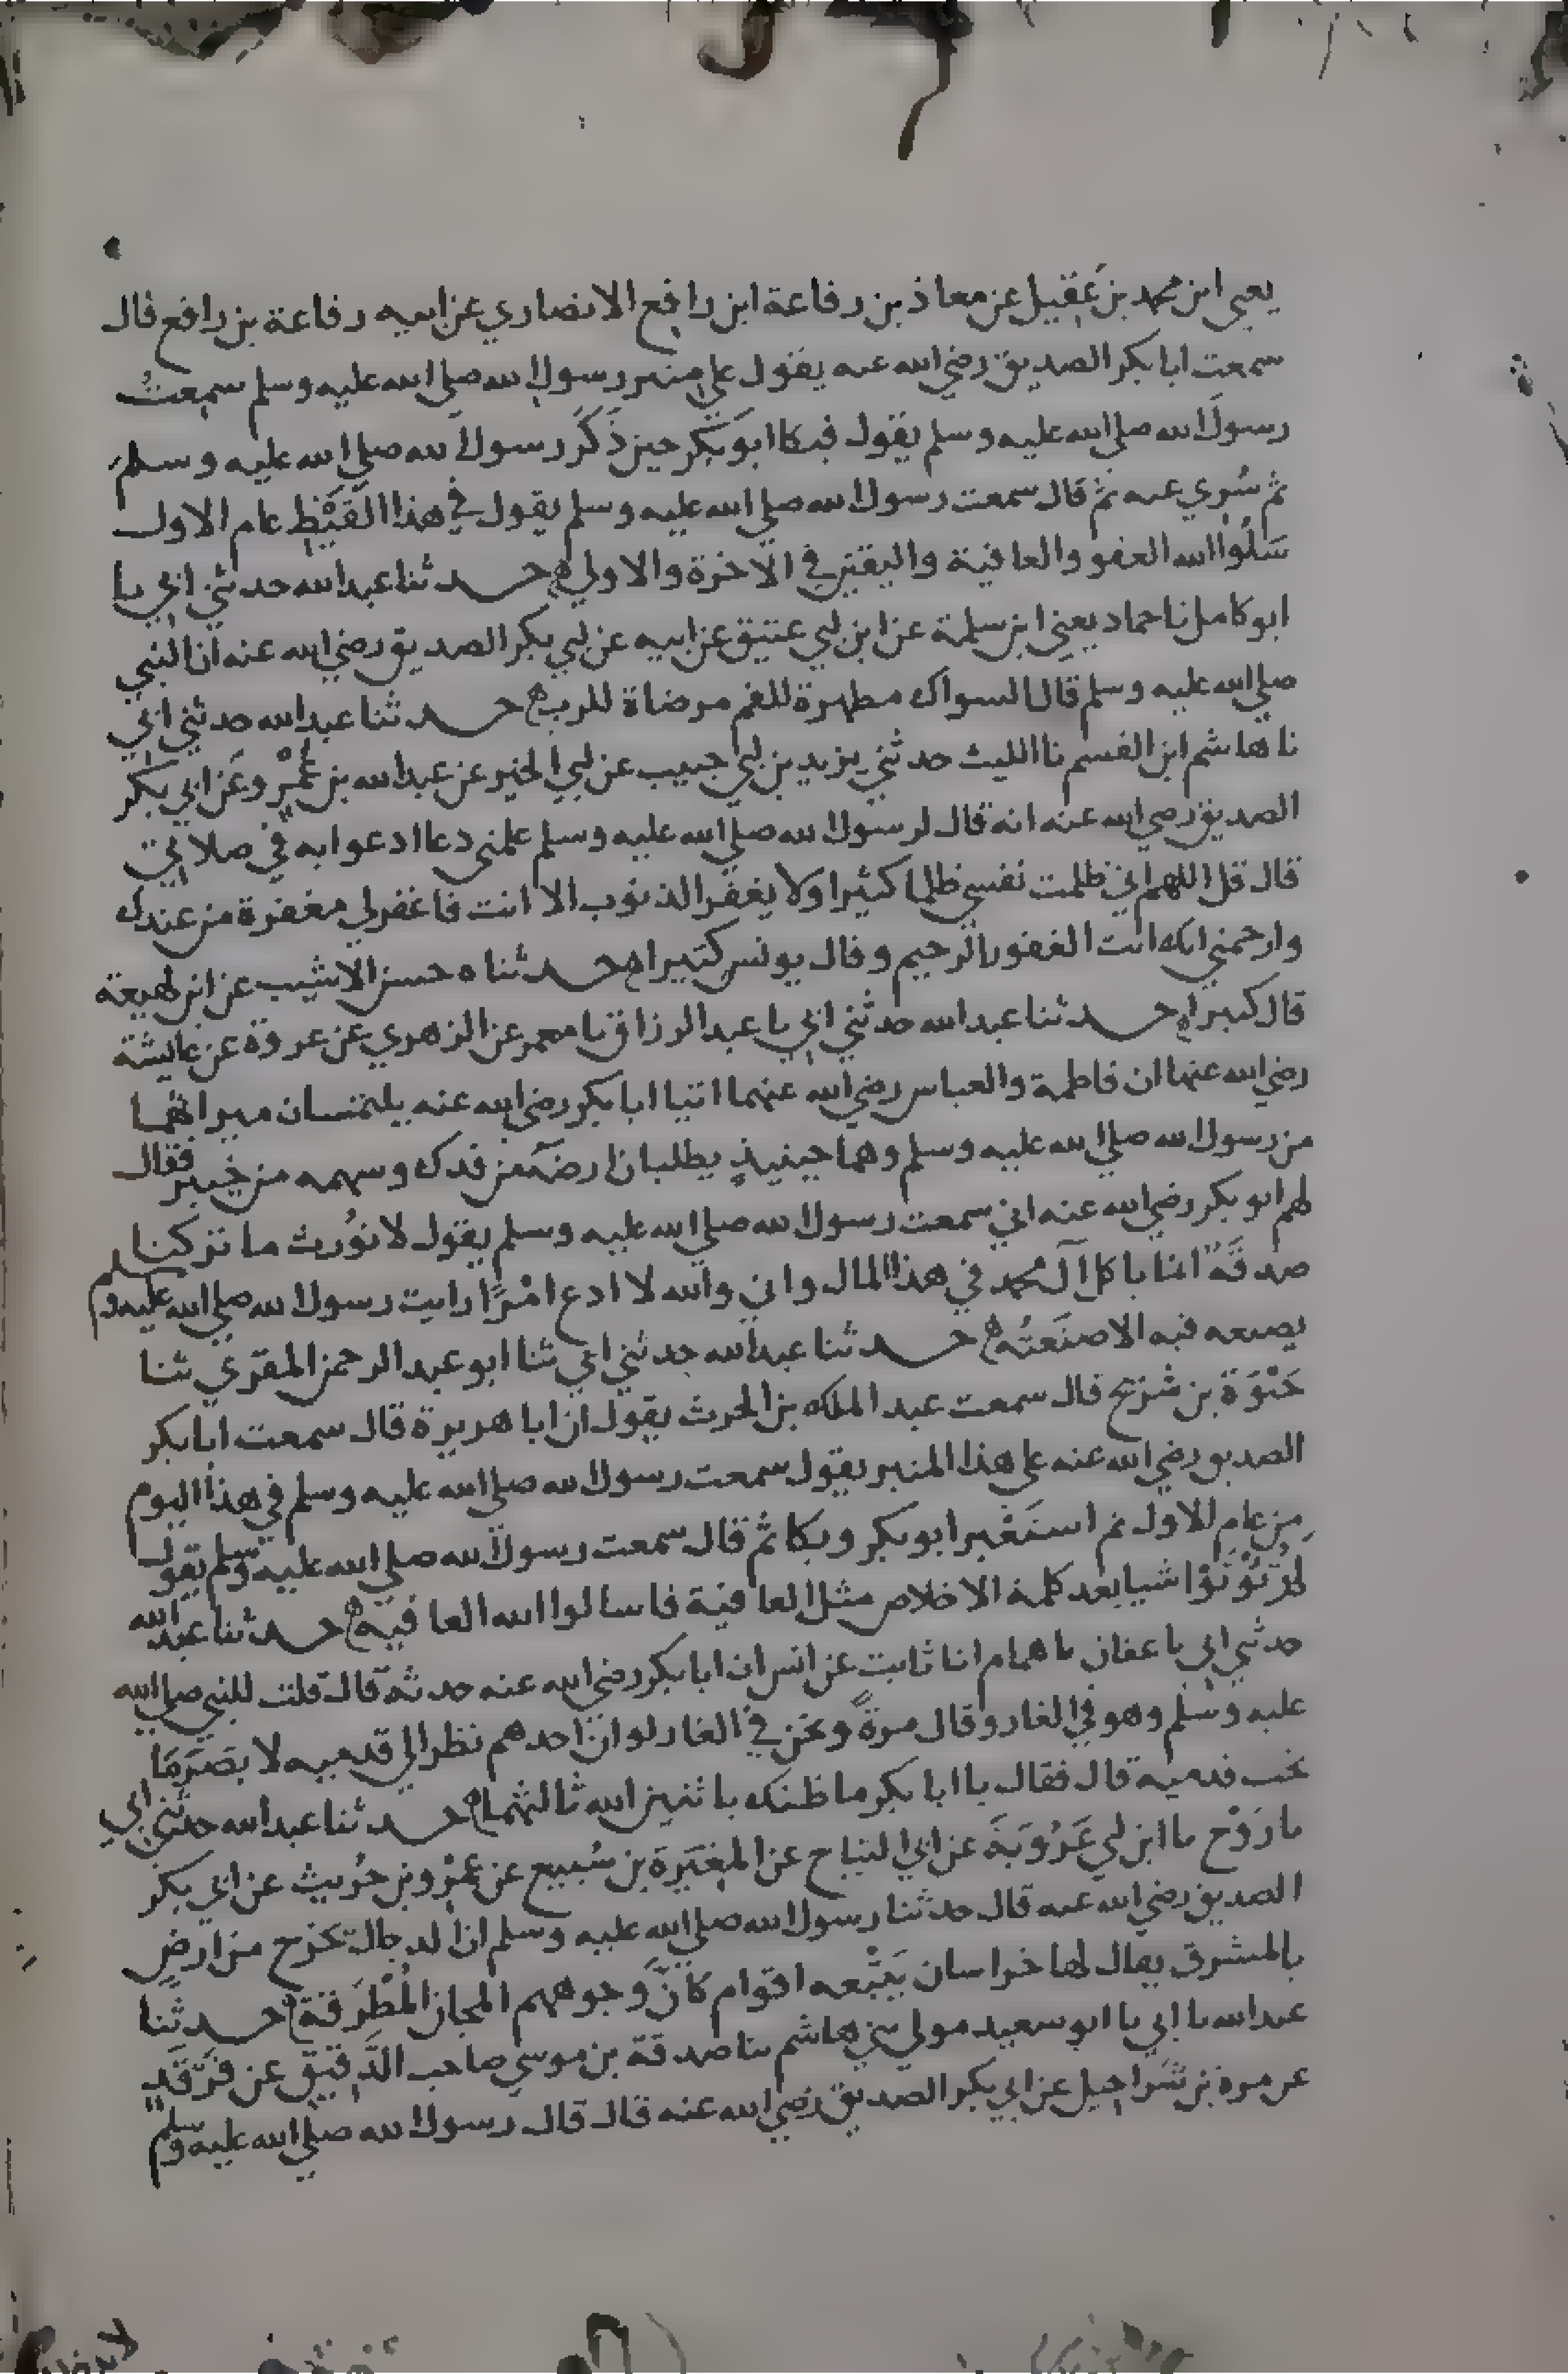 يعني ابن محمد بن عَقِيل عن معاذ بن رفاعة ابن رافع الانصاري عن ابيه رفاعة بن رافع قال
سمعت ابا بكر الصديق رضي الله عنه يقول على منبر رسول الله صلى الله عليه وسلم سمعتُ
رسول الله صلى الله عليه وسلم يقول فبكا ابو بكر حين ذَكَرَ رسول الله صلى الله عليه وسلم
ثم سُري عنه ثم قال سمعت رسول الله صلى الله عليه وسلم يقول في هذا القَيْظِ عام الاول
سَلُوا الله العفو والعافية واليقين في الآخرة والاولي ه حدثنا عبد الله حدثني ابي نا
ابو كامل نا حماد يعني ابن سلمة عن ابن ابي عتيق عن ابيه عن ابي بكر الصديق رضي الله عنه ان النبي
صلى الله عليه وسلم قال السواك مطهرة للفم مرضاة للرب ه حدثنا عبد الله حدثني ابي
نا هاشم ابن القسم نا الليث حدثني يزيد بن ابي حبيب عن ابي الخير عن عبد الله بن عَمْرٍو عَن ابي بكر
الصديق رضي الله عنه انه قال لرسول الله صلى الله عليه وسلم علمني دعا ادعوا به في صلاتي
قال قل اللهم اني ظلمت نفسي ظلما كثيرا ولا يغفر الذنوب الا انت فاغفر لي مغفرة من عندك
وارحمني انك انت الغفور الرحيم وقال يونس كبيرا ه حدثناه حسن الاشيب عن ابن لهيعة
قال كبيرا ه حدثنا عبد الله حدثني ابي نا عبد الرزاق نا معمر عن الزهري عن عروة عن عايشة
رضي الله عنها ان فاطمة والعباس رضي الله عنهما اتيا ابا بكر رضي الله عنه يلتمسان ميراثهما
من رسول الله صلى الله عليه وسلم وهما حينيذٍ يطلبان ارضَه من فدك وسهمه من خيبر فقال
لهم ابو بكر رضي الله عنه اني سمعت رسول الله صلى الله عليه وسلم يقول لا نُورث ما تركنا
صدقَةٌ انما ياكل آل محمد في هذا المال واني والله لا ادع امْرًا رايت رسول الله صلى الله عليه وسلم
يصنعه فيه الا صنَعتُه ه حدثنا عبد الله حدثني ابي ثنا ابو عبد الرحمن المقري ثنا
حَيْوَة بن شُرَيح قال سمعت عبد الملك بن الحرث يقول ان ابا هريرة قال سمعت ابا بكر
الصديق رضي الله عنه على هذا المنبر يقول سمعت رسول الله صلى الله عليه وسلم في هذا اليوم
من عام الاول ثم استَعْبر ابو بكر وبكا ثم قال سمعت رسول الله صلى الله عليه وسلم يقول
لم تُؤْتَوْا شيا بعد كلمة الاخلاص مثل العافية فاسالوا الله العافيه ه حدثنا عبد الله
حدثني ابي نا عفان نا همام انا ثابت عن انس ان ابا بكر رضي الله عنه حدثه قال قلت للنبي صلى الله
عليه وسلم وهو في الغار وقال مرةً ونحن في الغار لو ان احدهم نظر الى قدميه لابصَرَنَا
تحت قدميه قال فقال يا ابا بكر ما ظنك باثنين الله ثالثهما ه حدثنا عبد الله حدثني ابي
نا رَوْح نا ابن ابي عَرُوبَة عن ابي التياح عن المغيرة بن سُبيع عن عَمْرو بن حُريث عن ابي بكر
الصديق رضي الله عنه قال حدثنا رسول الله صلى الله عليه وسلم ان الدجال يخرج من ارض
بالمشرق يقال لها خراسان يَتْبَعه اقوام كانّ وجوههم المجان المُطْرَقة ه حدثَنا
عبد الله نا ابي نا ابو سعيد مولي بني هاشم نا صدقة بن موسي صاحب الدَّقِيق عن فَرْقَدٍ
عن مرة بن شَراحِيل عن ابي بكر الصديق رضي الله عنه قال قال رسول الله صلى الله عليه وسلم